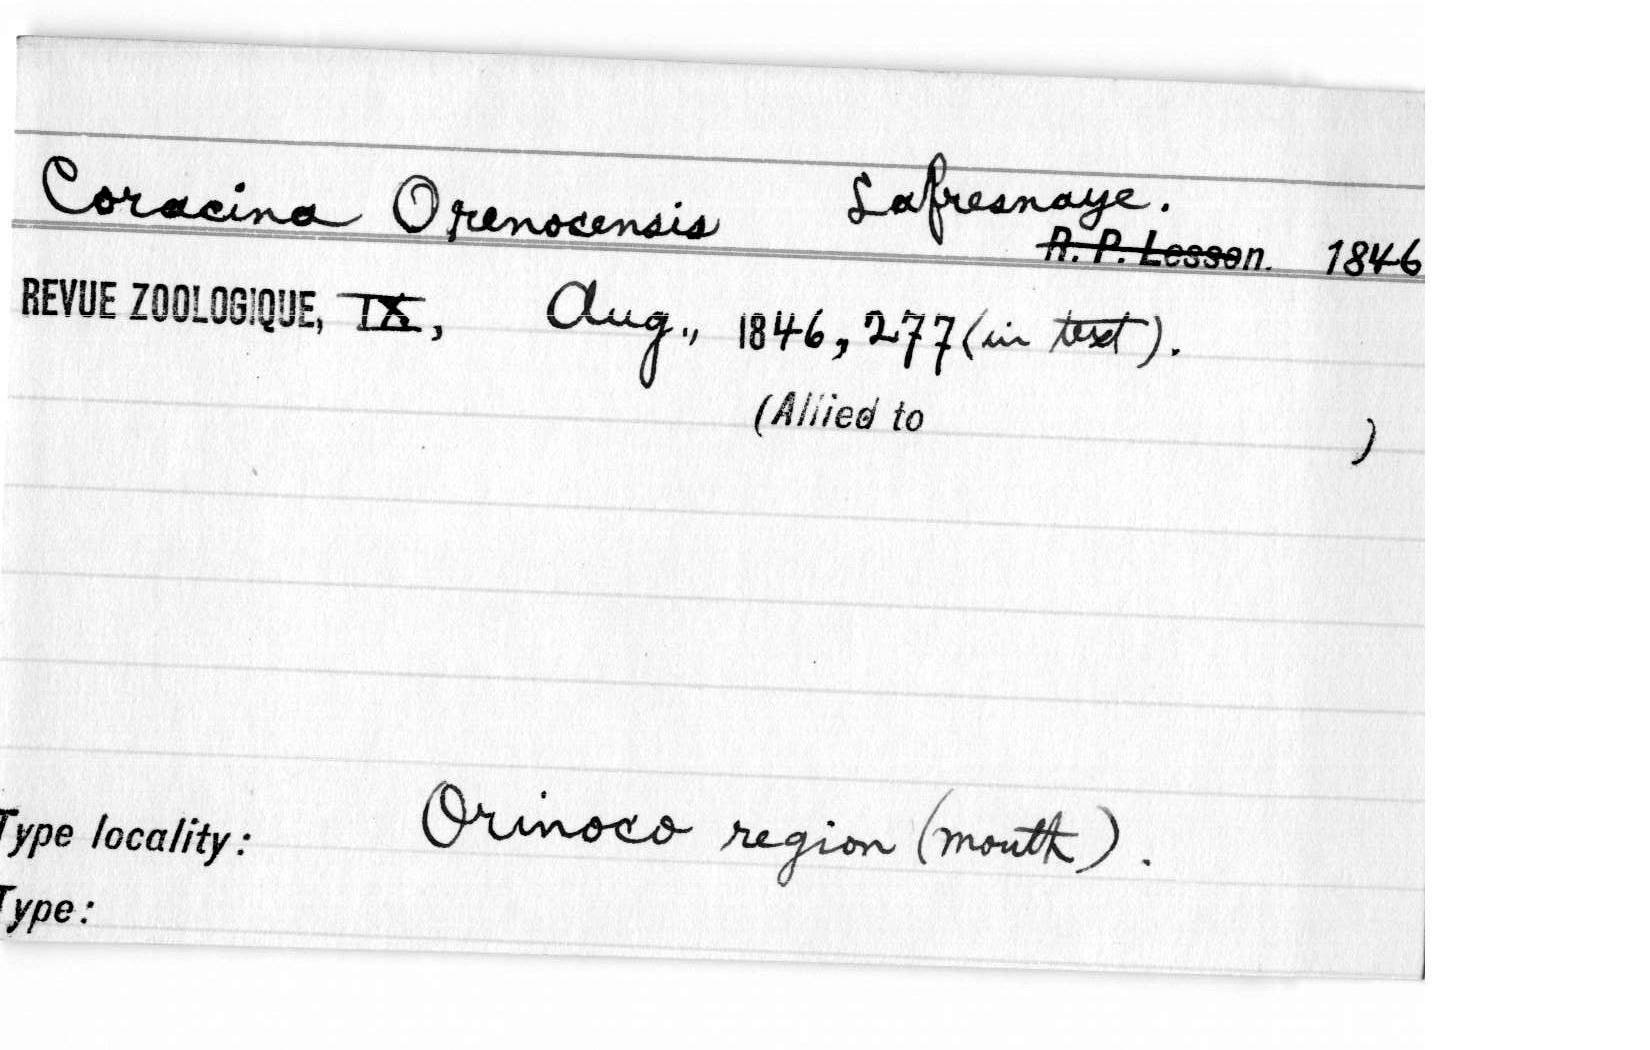 Coracina Orenocensis Lafresnaye.
R. P. Lesson. 1846
REVUE ZOOLOGIQUE, IX, Aug., 1846, 277 (in text).
(Allied to )
Type locality: Orinoco region (mouth).
Type: